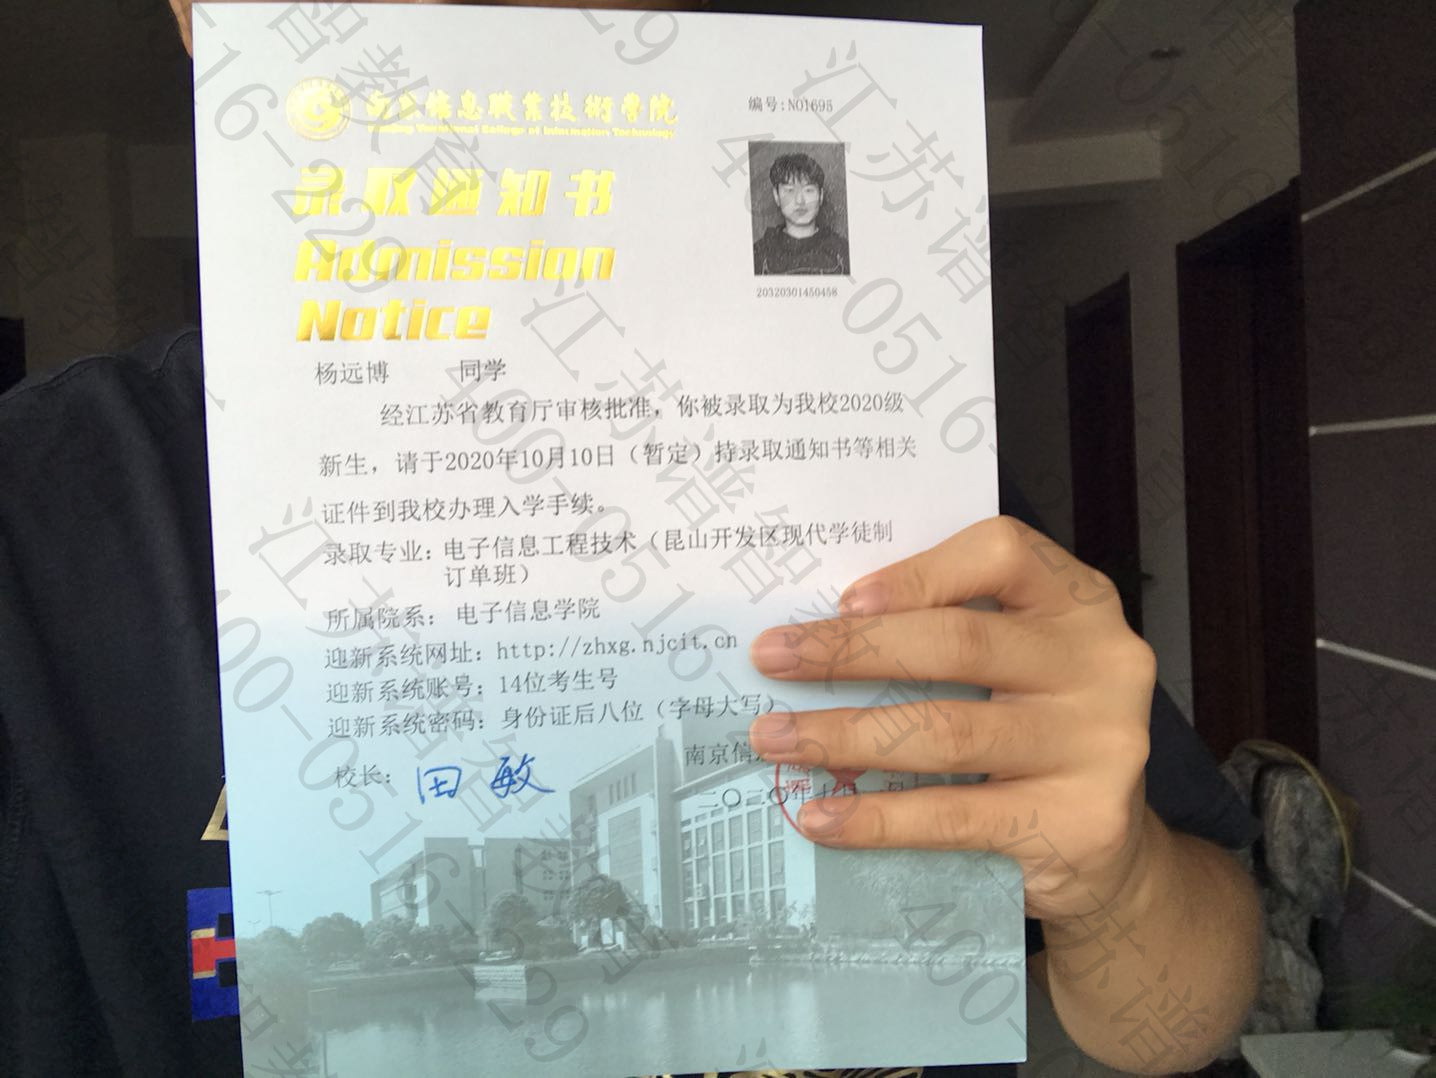 南京信息职业技术学院
Nanjing Vocational College of Information Technology
编号:NO1695
录取通知书
Admission
Notice
20320301450458
杨远博 同学
经江苏省教育厅审核批准，你被录取为我校2020级
新生，请于2020年10月10日（暂定）持录取通知书等相关
证件到我校办理入学手续。
录取专业：电子信息工程技术（昆山开发区现代学徒制
订单班）
所属院系：电子信息学院
迎新系统网址：http://zhxg.njcit.cn
迎新系统账号：14位考生号
迎新系统密码：身份证后八位（字母大写）
校长：田敏
南京信息
二〇二〇年
江苏谱智教育
400-0516-229